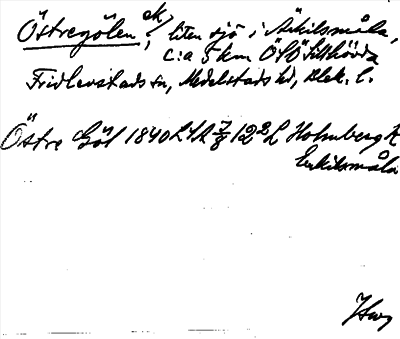 Östregölen, ek, liten sjö i Ärkilsmåla,
c:a 5 km ÖSÖ Tillhövda
Fridlevstads sn, Medelstads hd, Blek. l.
Östre Göl 1840 LSA 7/8 1222 Holmberg K
Erkilsmåla